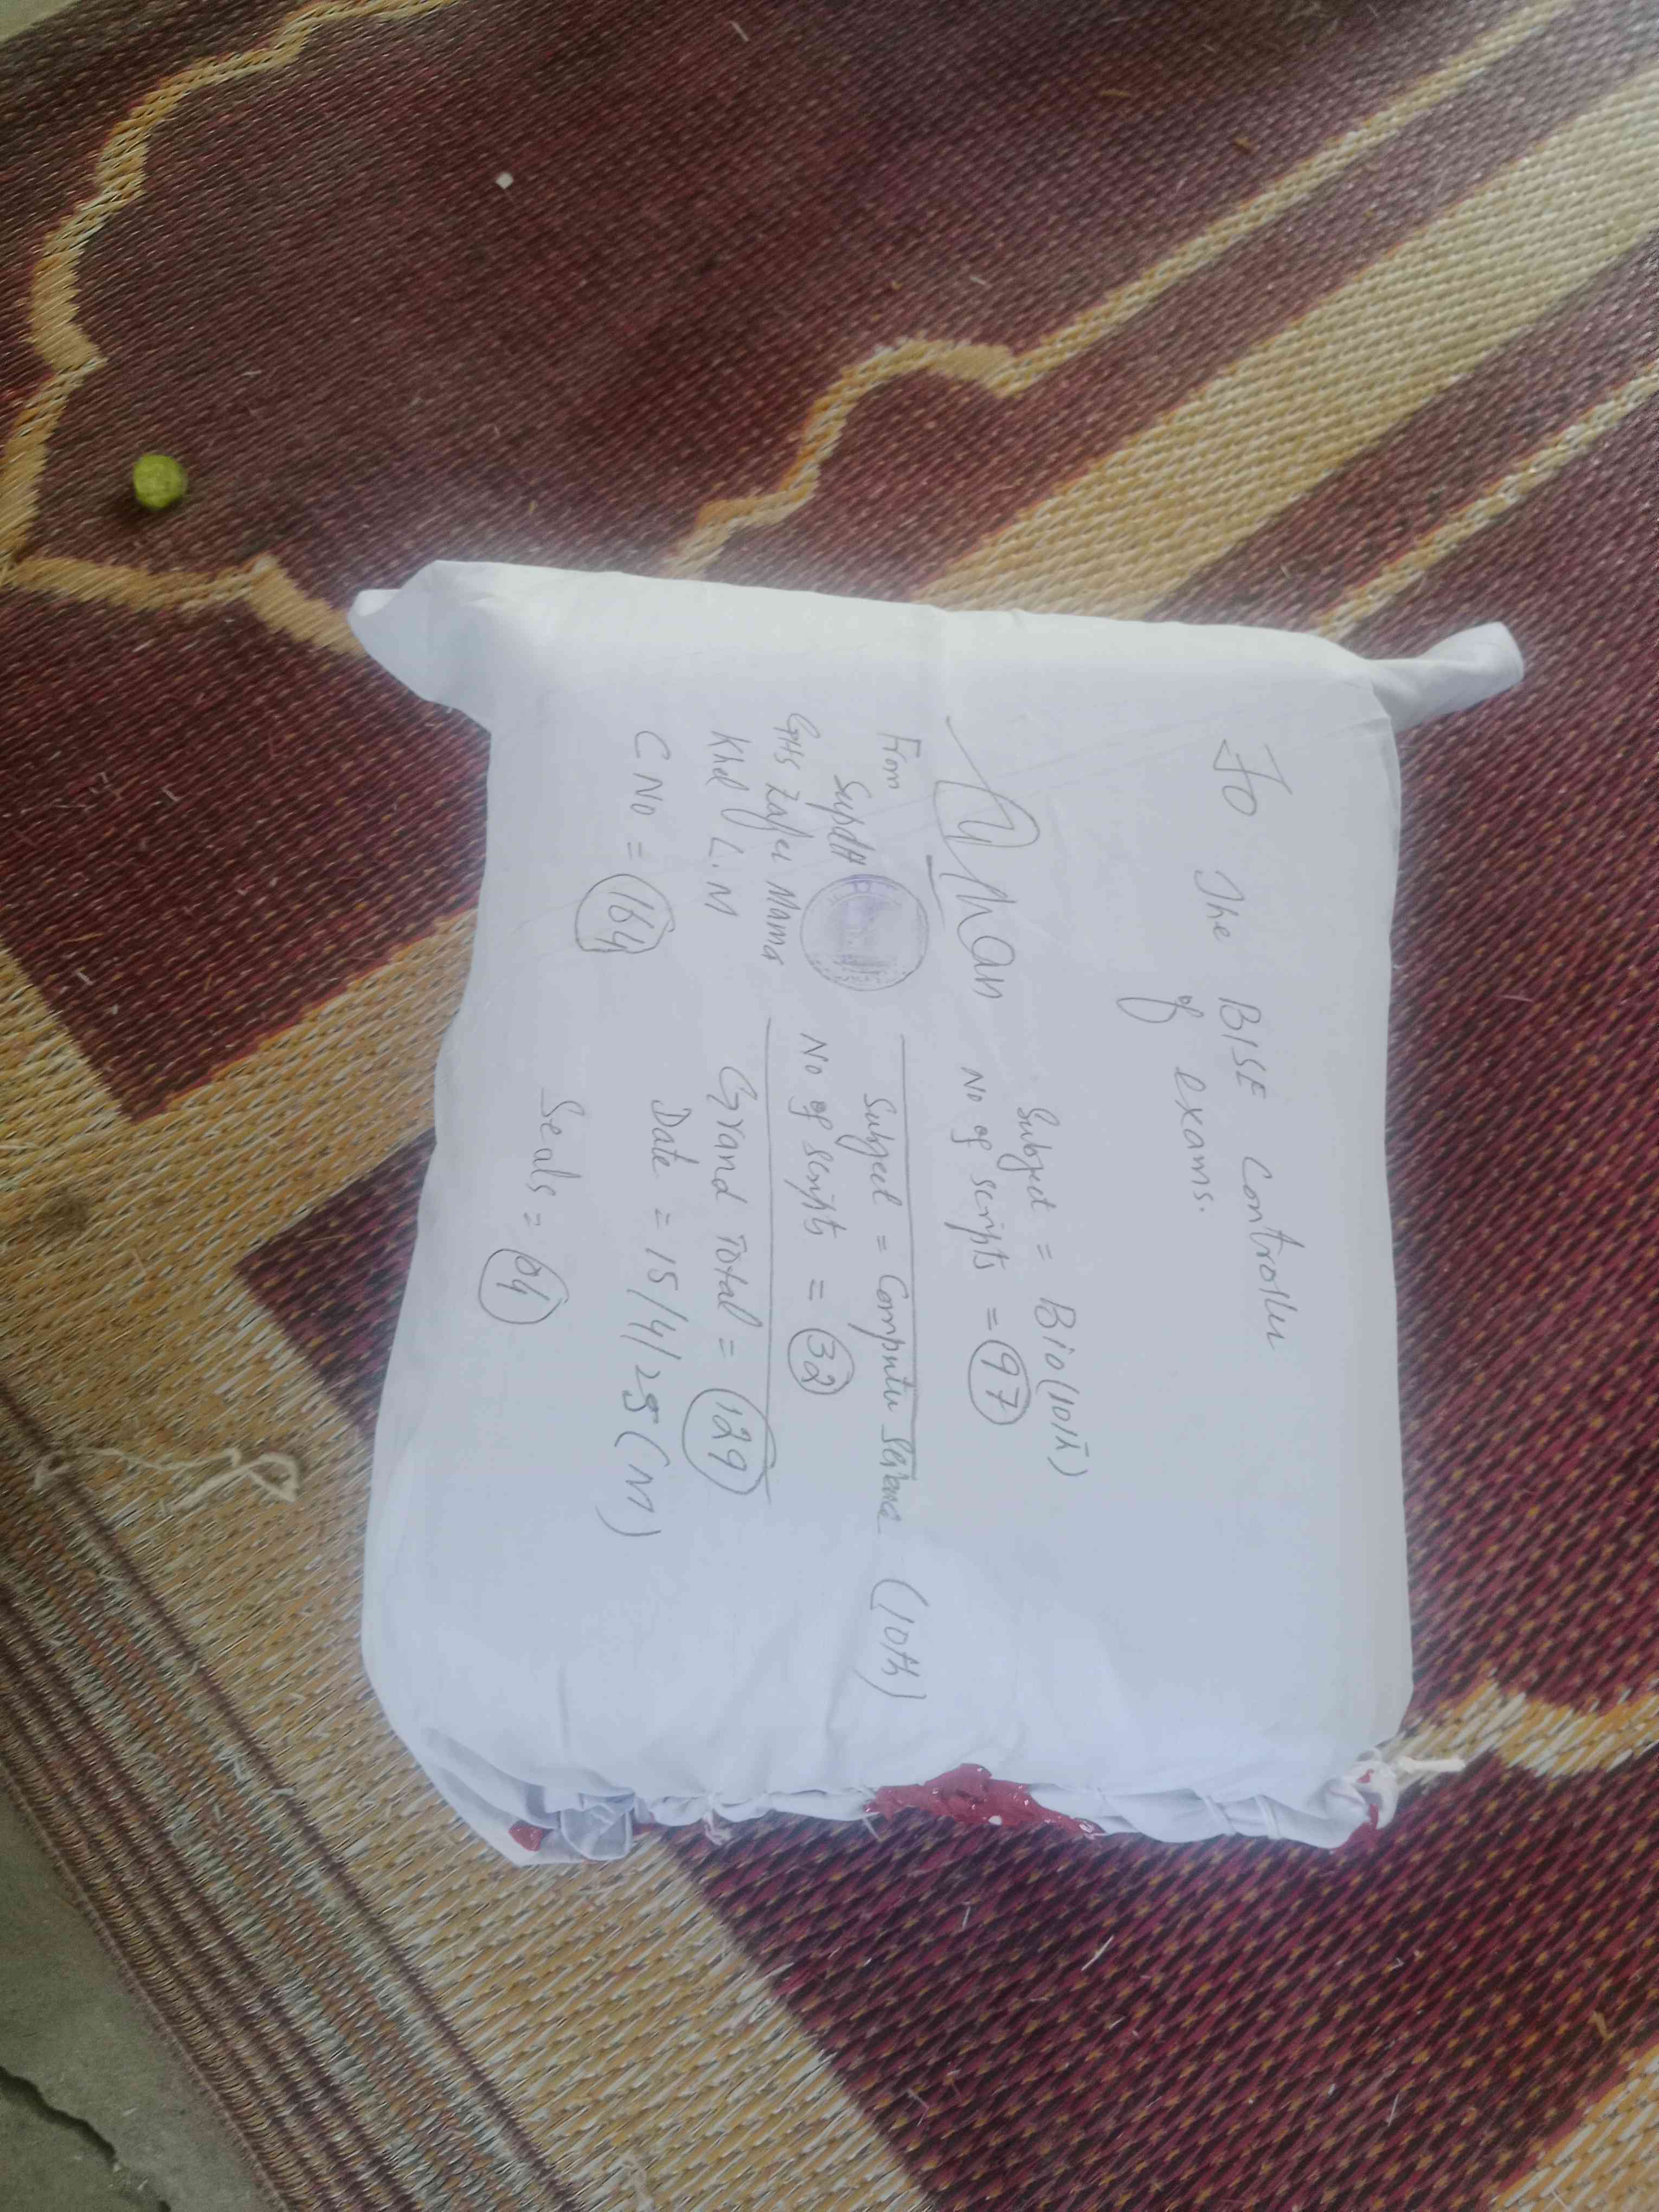 To The BISE Controller
of exams.
Subject = Bio (10th)
No of scripts = 97
Subject = Computer Science (10th)
No of scripts = 32
Grand Total = 129
Date = 15/4/25 (M)
Seals = 04
From
Supdtt
GHS Zafer Mama
Khel L.M
C No = 164